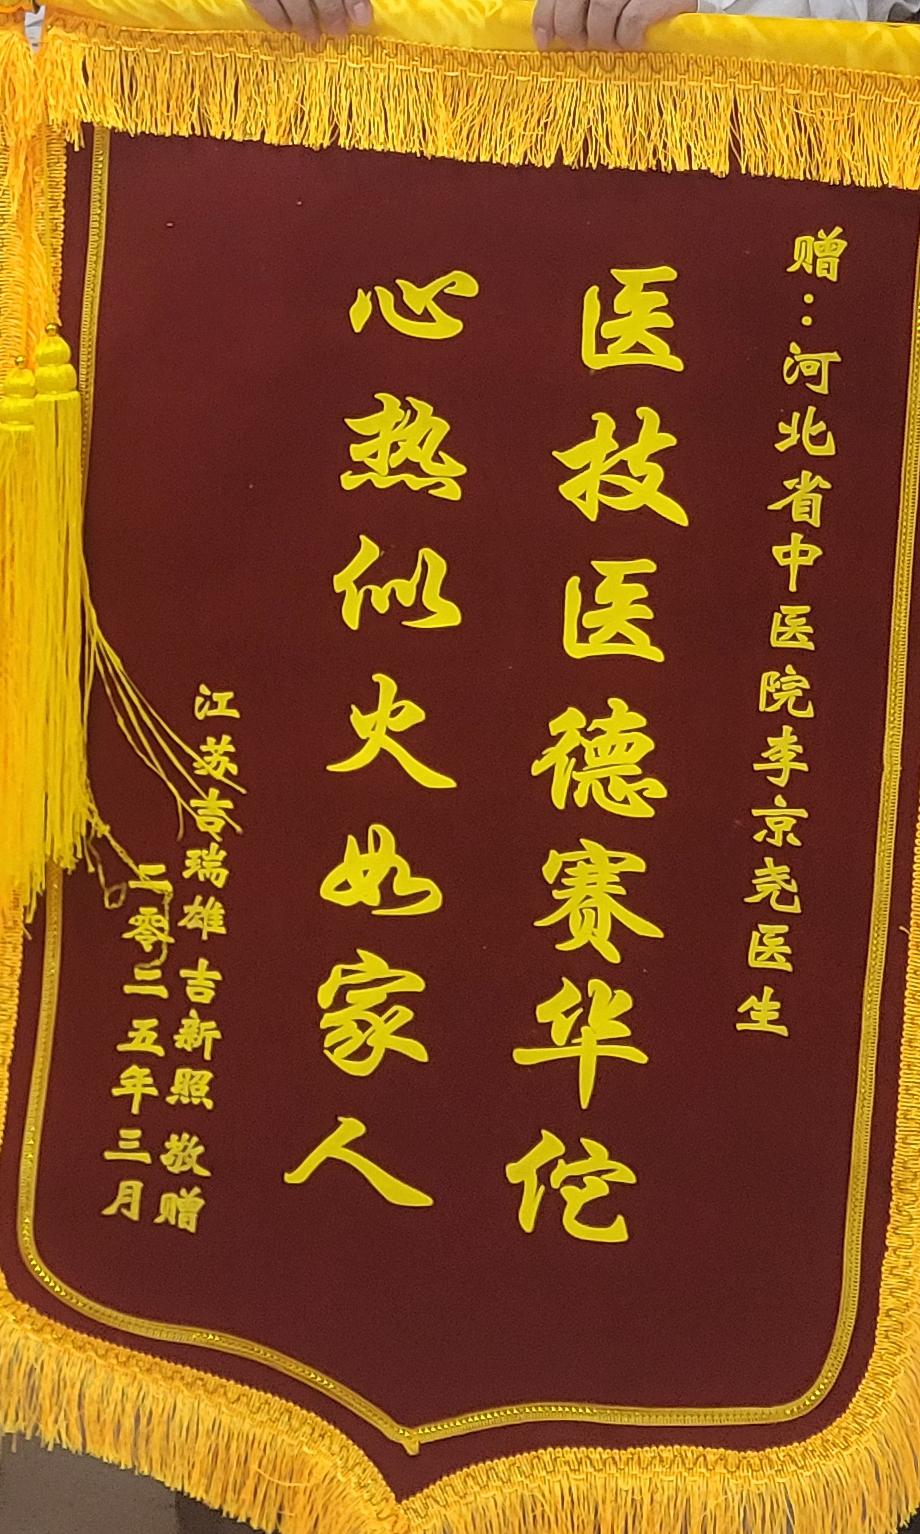 赠：河北省中医院李京尧医生
医技医德赛华佗
心热似火如家人
江苏吉瑞雄 吉新照 敬赠
二零二五年三月